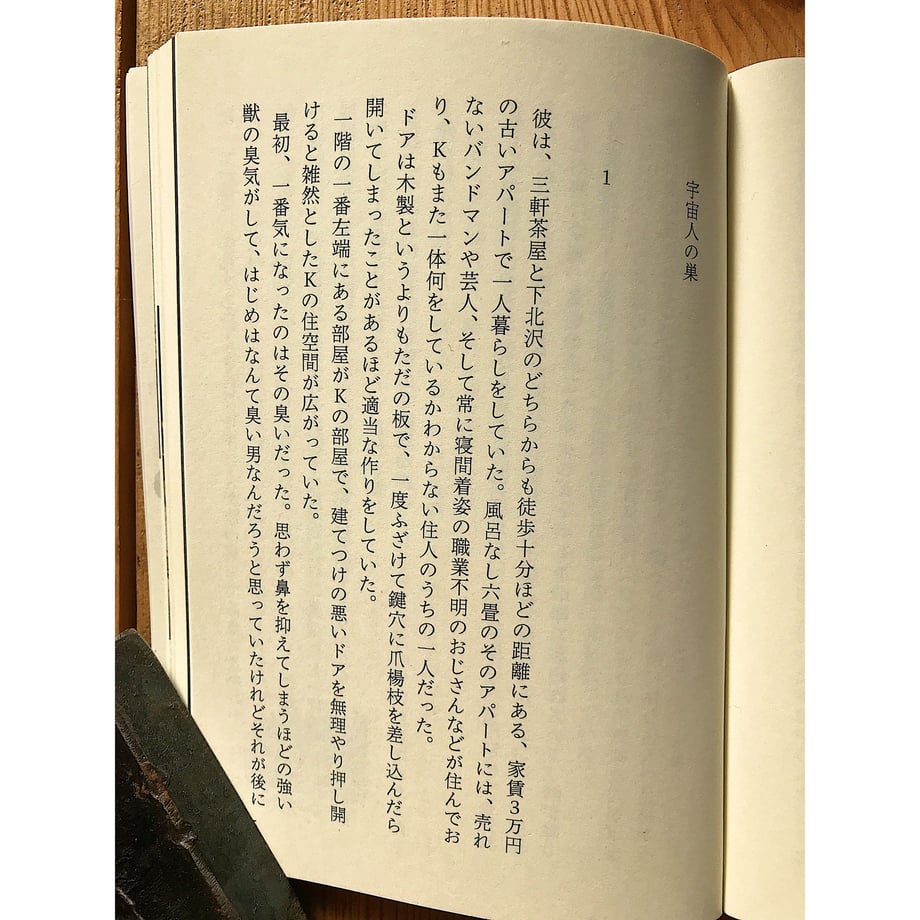 宇宙人の巣
1
彼は、三軒茶屋と下北沢のどちらからも徒歩十分ほどの距離にある、家賃3万円
の古いアパートで一人暮らしをしていた。風呂なし六畳のそのアパートには、売れ
ないバンドマンや芸人、そして常に寝間着姿の職業不明のおじさんなどが住んでお
り、Kもまた一体何をしているかわからない住人のうちの一人だった。
ドアは木製というよりもただの板で、一度ふざけて鍵穴に爪楊枝を差し込んだら
開いてしまったことがあるほど適当な作りをしていた。
一階の一番左端にある部屋がKの部屋で、建てつけの悪いドアを無理やり押し開
けると雑然としたKの住空間が広がっていた。
最初、一番気になったのはその臭いだった。思わず鼻を抑えてしまうほどの強い
獣の臭気がして、はじめはなんて臭い男なんだろうと思っていたけれどそれが後に